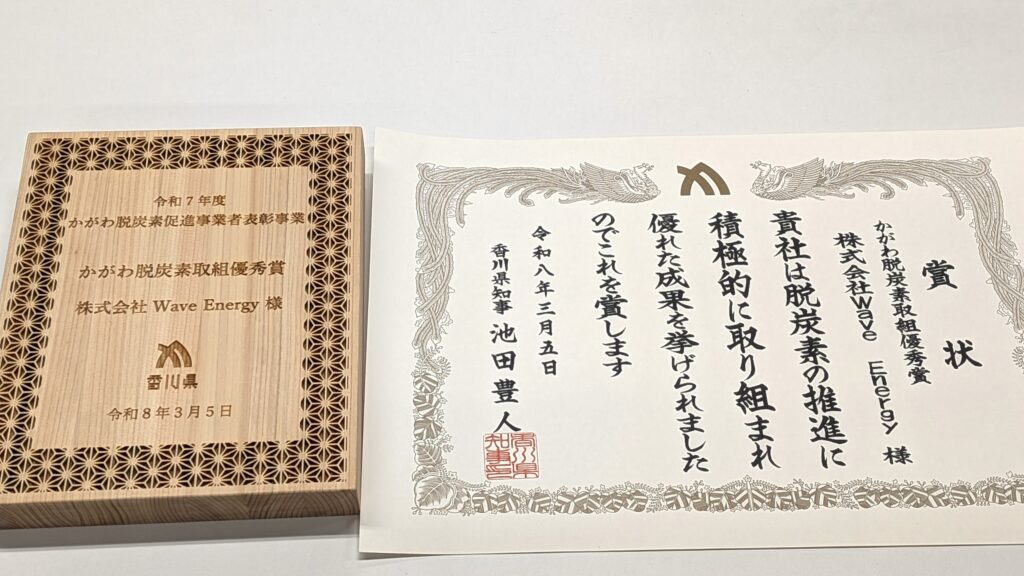 令和7年度
かがわ脱炭素促進事業者表彰事業
かがわ脱炭素取組優秀賞
株式会社 Wave Energy 様
香川県
令和8年3月5日
賞状
かがわ脱炭素取組優秀賞
株式会社Wave Energy 様
貴社は脱炭素の推進に
積極的に取り組まれ
優れた成果を挙げられました
のでこれを賞します
令和八年三月五日
香川県知事 池田豊人
香川県知事印